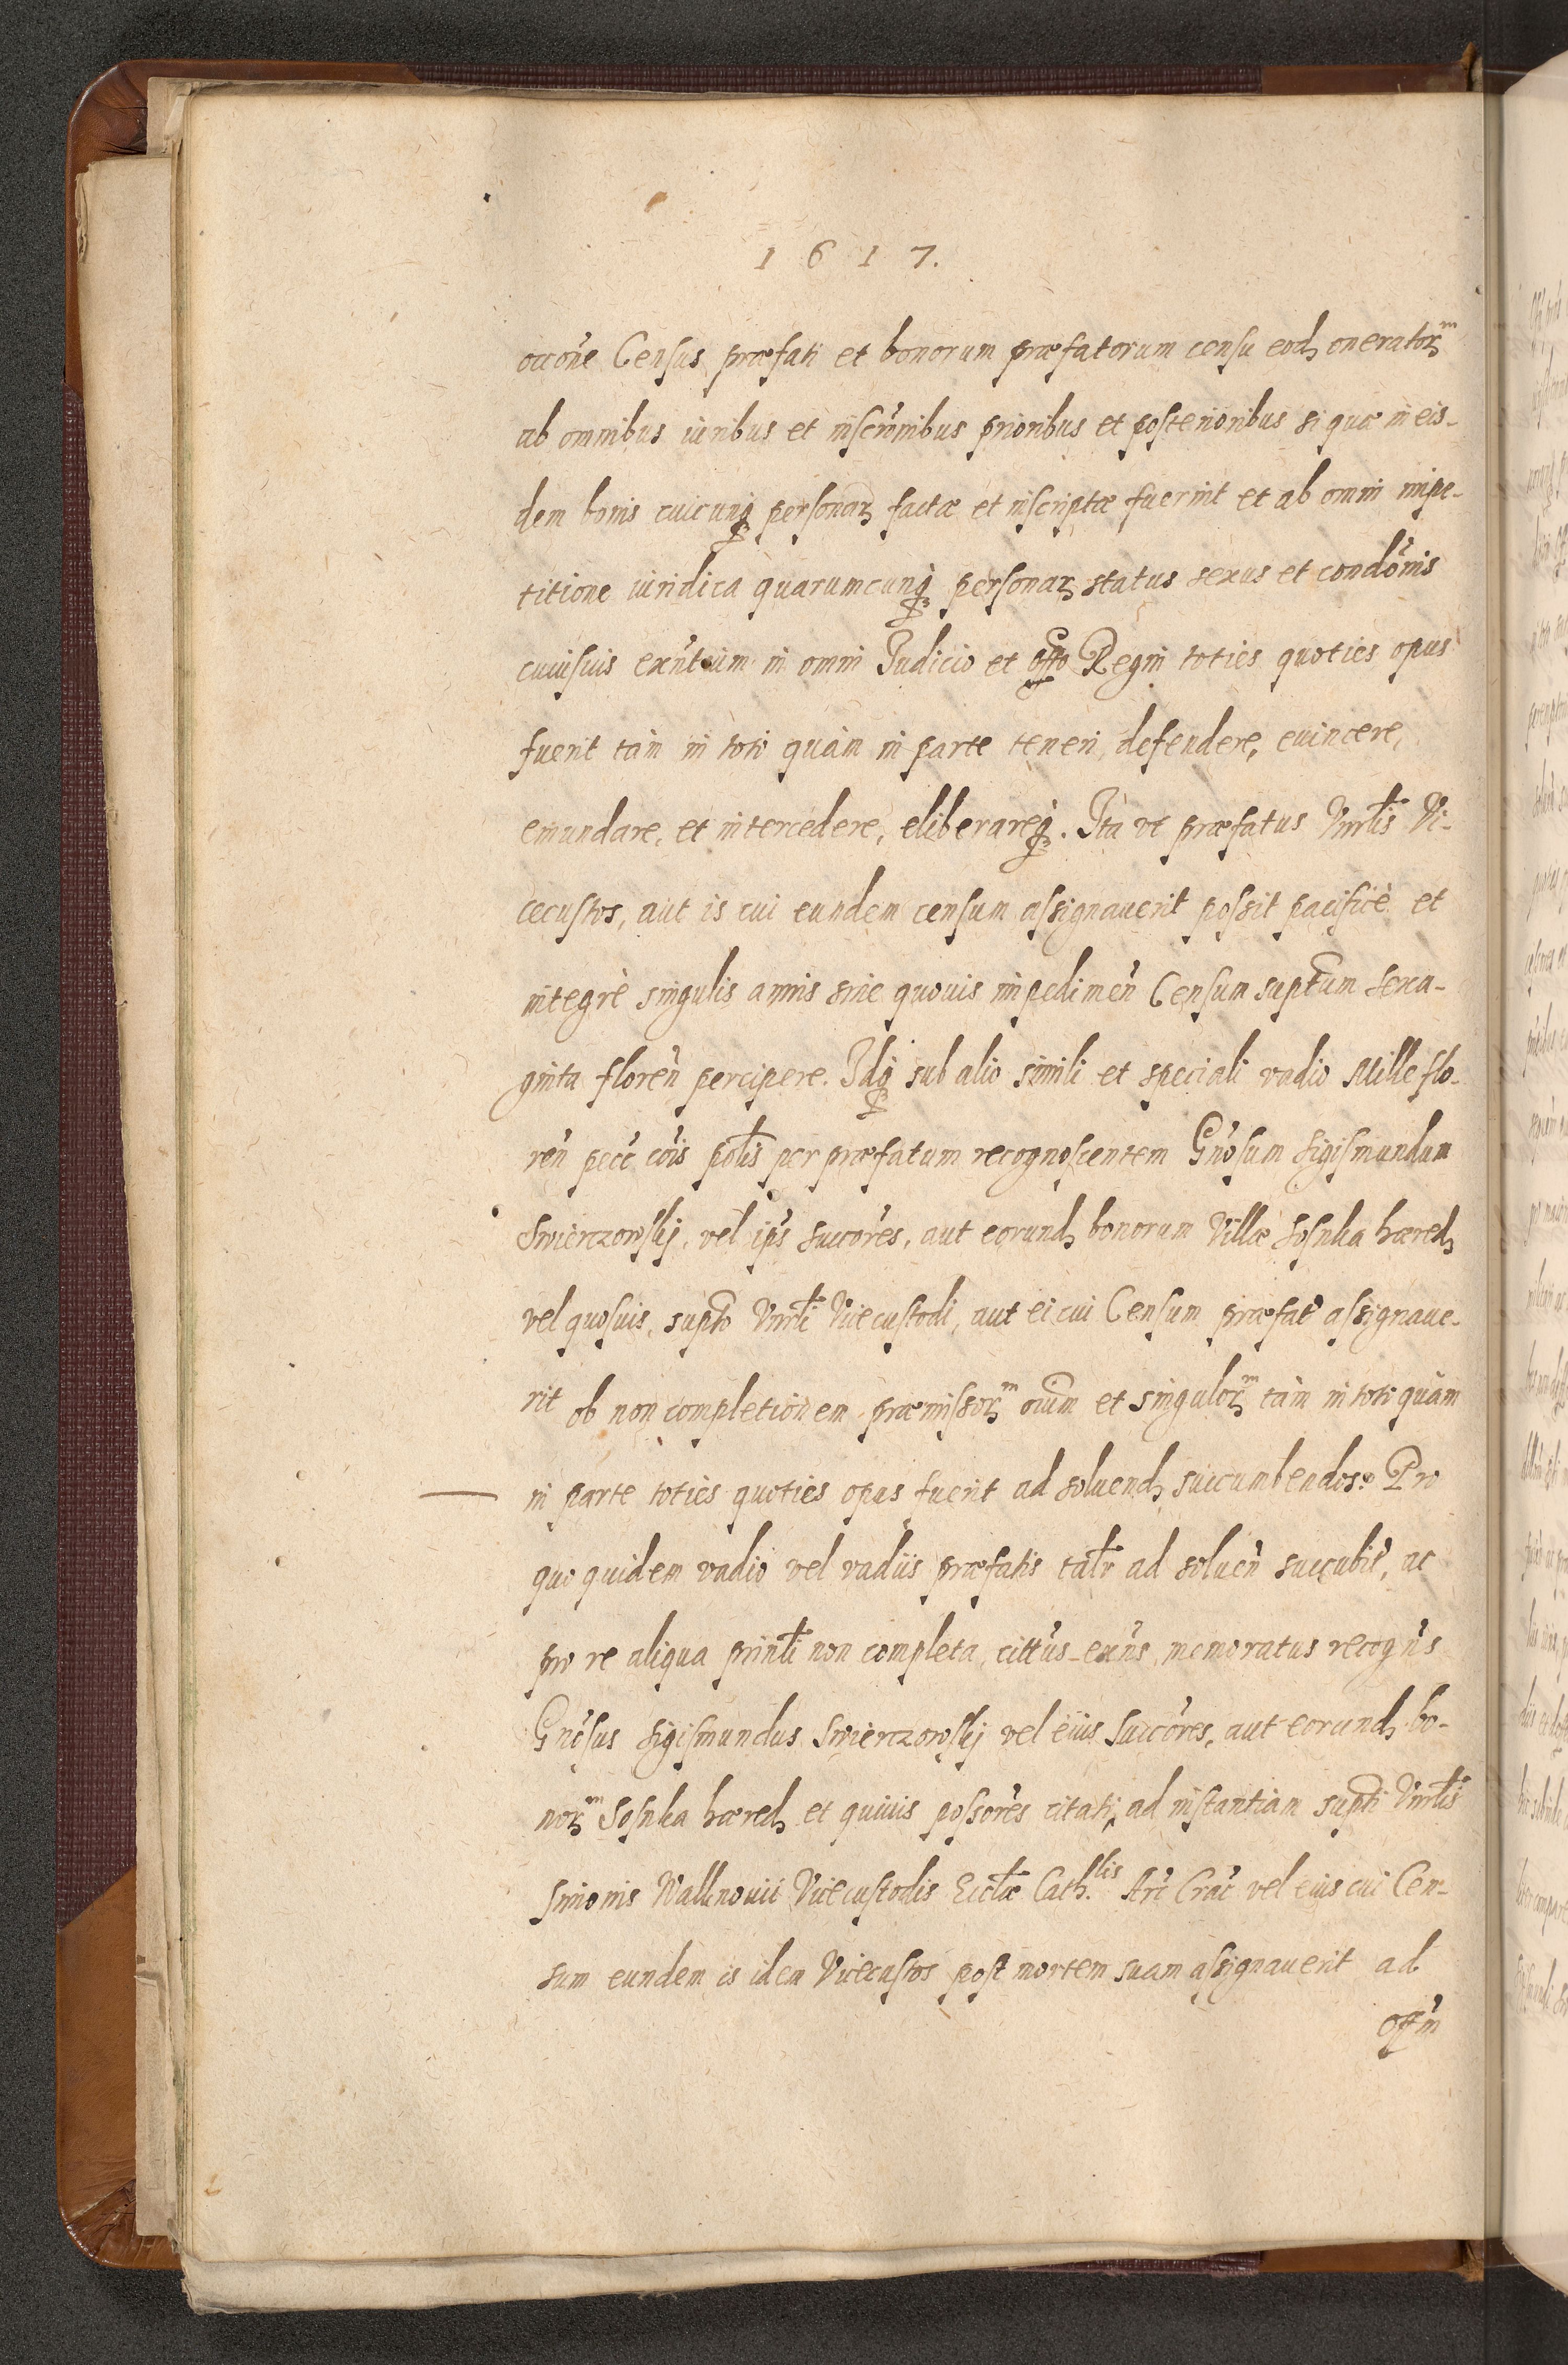 1617.
occone Census præfati et bonorum præfatorum censu eod onerator^m
ab omnibus iuribus et inscrinibus prioribus et posterioribus si quæ in eis-
dem bonis cuicunq personar factæ et inscriptæ fuerint et ab omni impe-
titione iuridica quarumcunq personar status sexus et condonis
cuiusuis exntium in omni Judicio et offo Regni toties quoties opus
fuerit tàm in toto quàm in parte teneri, defendere, euincere,
emundare, et intercedere, eliberareq. Ita vt præfatus Vnrlis Vi-
cecustos, aut is cui eundem censum assignauerit possit pacificè et
integrè singulis annis sine quouis impedimen Censum suptum sexa-
ginta floren percipere. Idq sub alio simili et speciali vadio Mille flo-
ren pecc cois polis per præfatum recognoscentem Gnosum Sigismundum
Swierczowskj, vel ips succores, aut eorund bonorum Villæ Sosnka hæred
vel quosuis, supto Vnrli Vicecustodi, aut ei cui Censum præfat assignaue-
rit ob non completionem præmissor^m oium et singulor^m tàm in toto quàm
in parte toties quoties opus fuerit ad soluend succumbendos. Pro
quo quidem vadio vel vadiis præfatis talr ad soluen succubit, ac
pro re aliqua prinli non completa, cittus exns memoratus recogns
Gnosus Sigismundus Swierczowskj vel eius succores, aut eorund bo-
nor^m Sosnka hæred et quiuis possores citati, ad instantiam supti Vnrlis
Simonis Walknouii Vicecustodis Eccliæ Cath.^lis Arc Crac vel eius cui Cen-
sum eundem is idem Vicecustos post mortem suam assignauerit ad
Offm